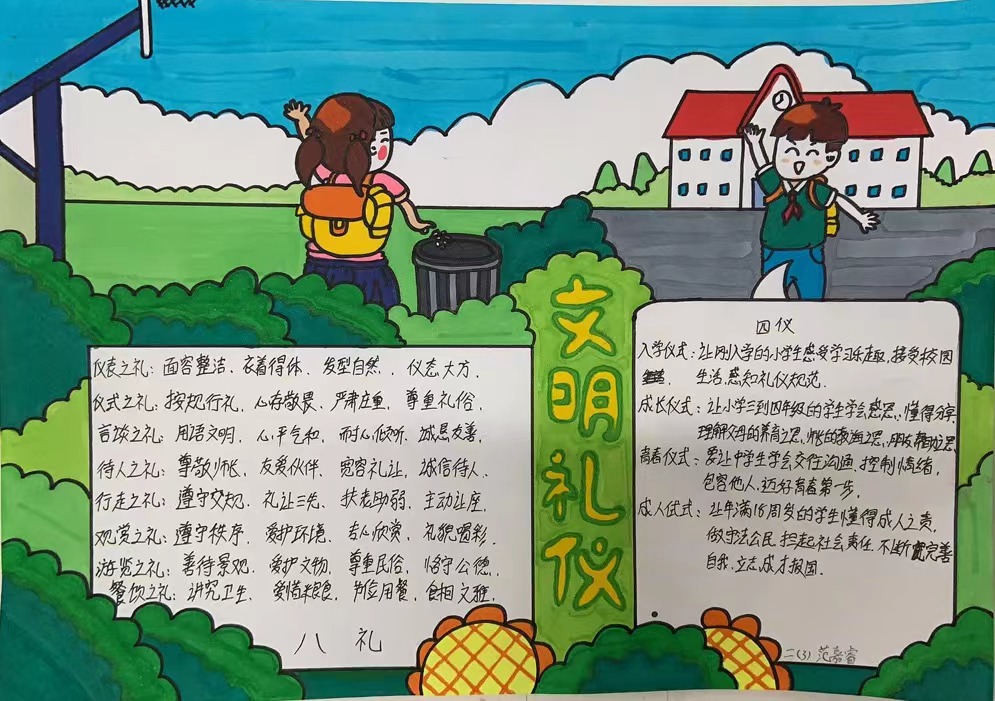 文明礼仪
仪表之礼：面容整洁、衣着得体、发型自然、仪态大方.
仪式之礼：按规行礼、心存敬畏、严肃庄重、尊重礼俗.
言谈之礼：用语文明、心平气和、耐心倾听、诚恳友善.
待人之礼：尊敬师长、友爱伙伴、宽容礼让、诚信待人.
行走之礼：遵守交规、礼让三先、扶老助弱、主动让座.
观赏之礼：遵守秩序、爱护环境、专心欣赏、礼貌喝彩.
游览之礼：善待景观、爱护文物、尊重民俗、恪守公德.
餐饮之礼：讲究卫生、爱惜粮食、节俭用餐、食相文雅.
八礼
四仪
入学仪式：让刚入学的小学生感受学习乐趣，接受校园
生活，感知礼仪规范.
成长仪式：让小学三到四年级的学生学会感恩、懂得分享
理解父母的养育之恩、师长的教诲之恩、朋友帮助之恩
青春仪式：要让中学生学会交往沟通，控制情绪，
包容他人，迈好青春第一步.
成人仪式：让年满18周岁的学生懂得成人之责.
做守法公民，担起社会责任，不断完善
自我，立志成才报国.
二(3) 范嘉睿